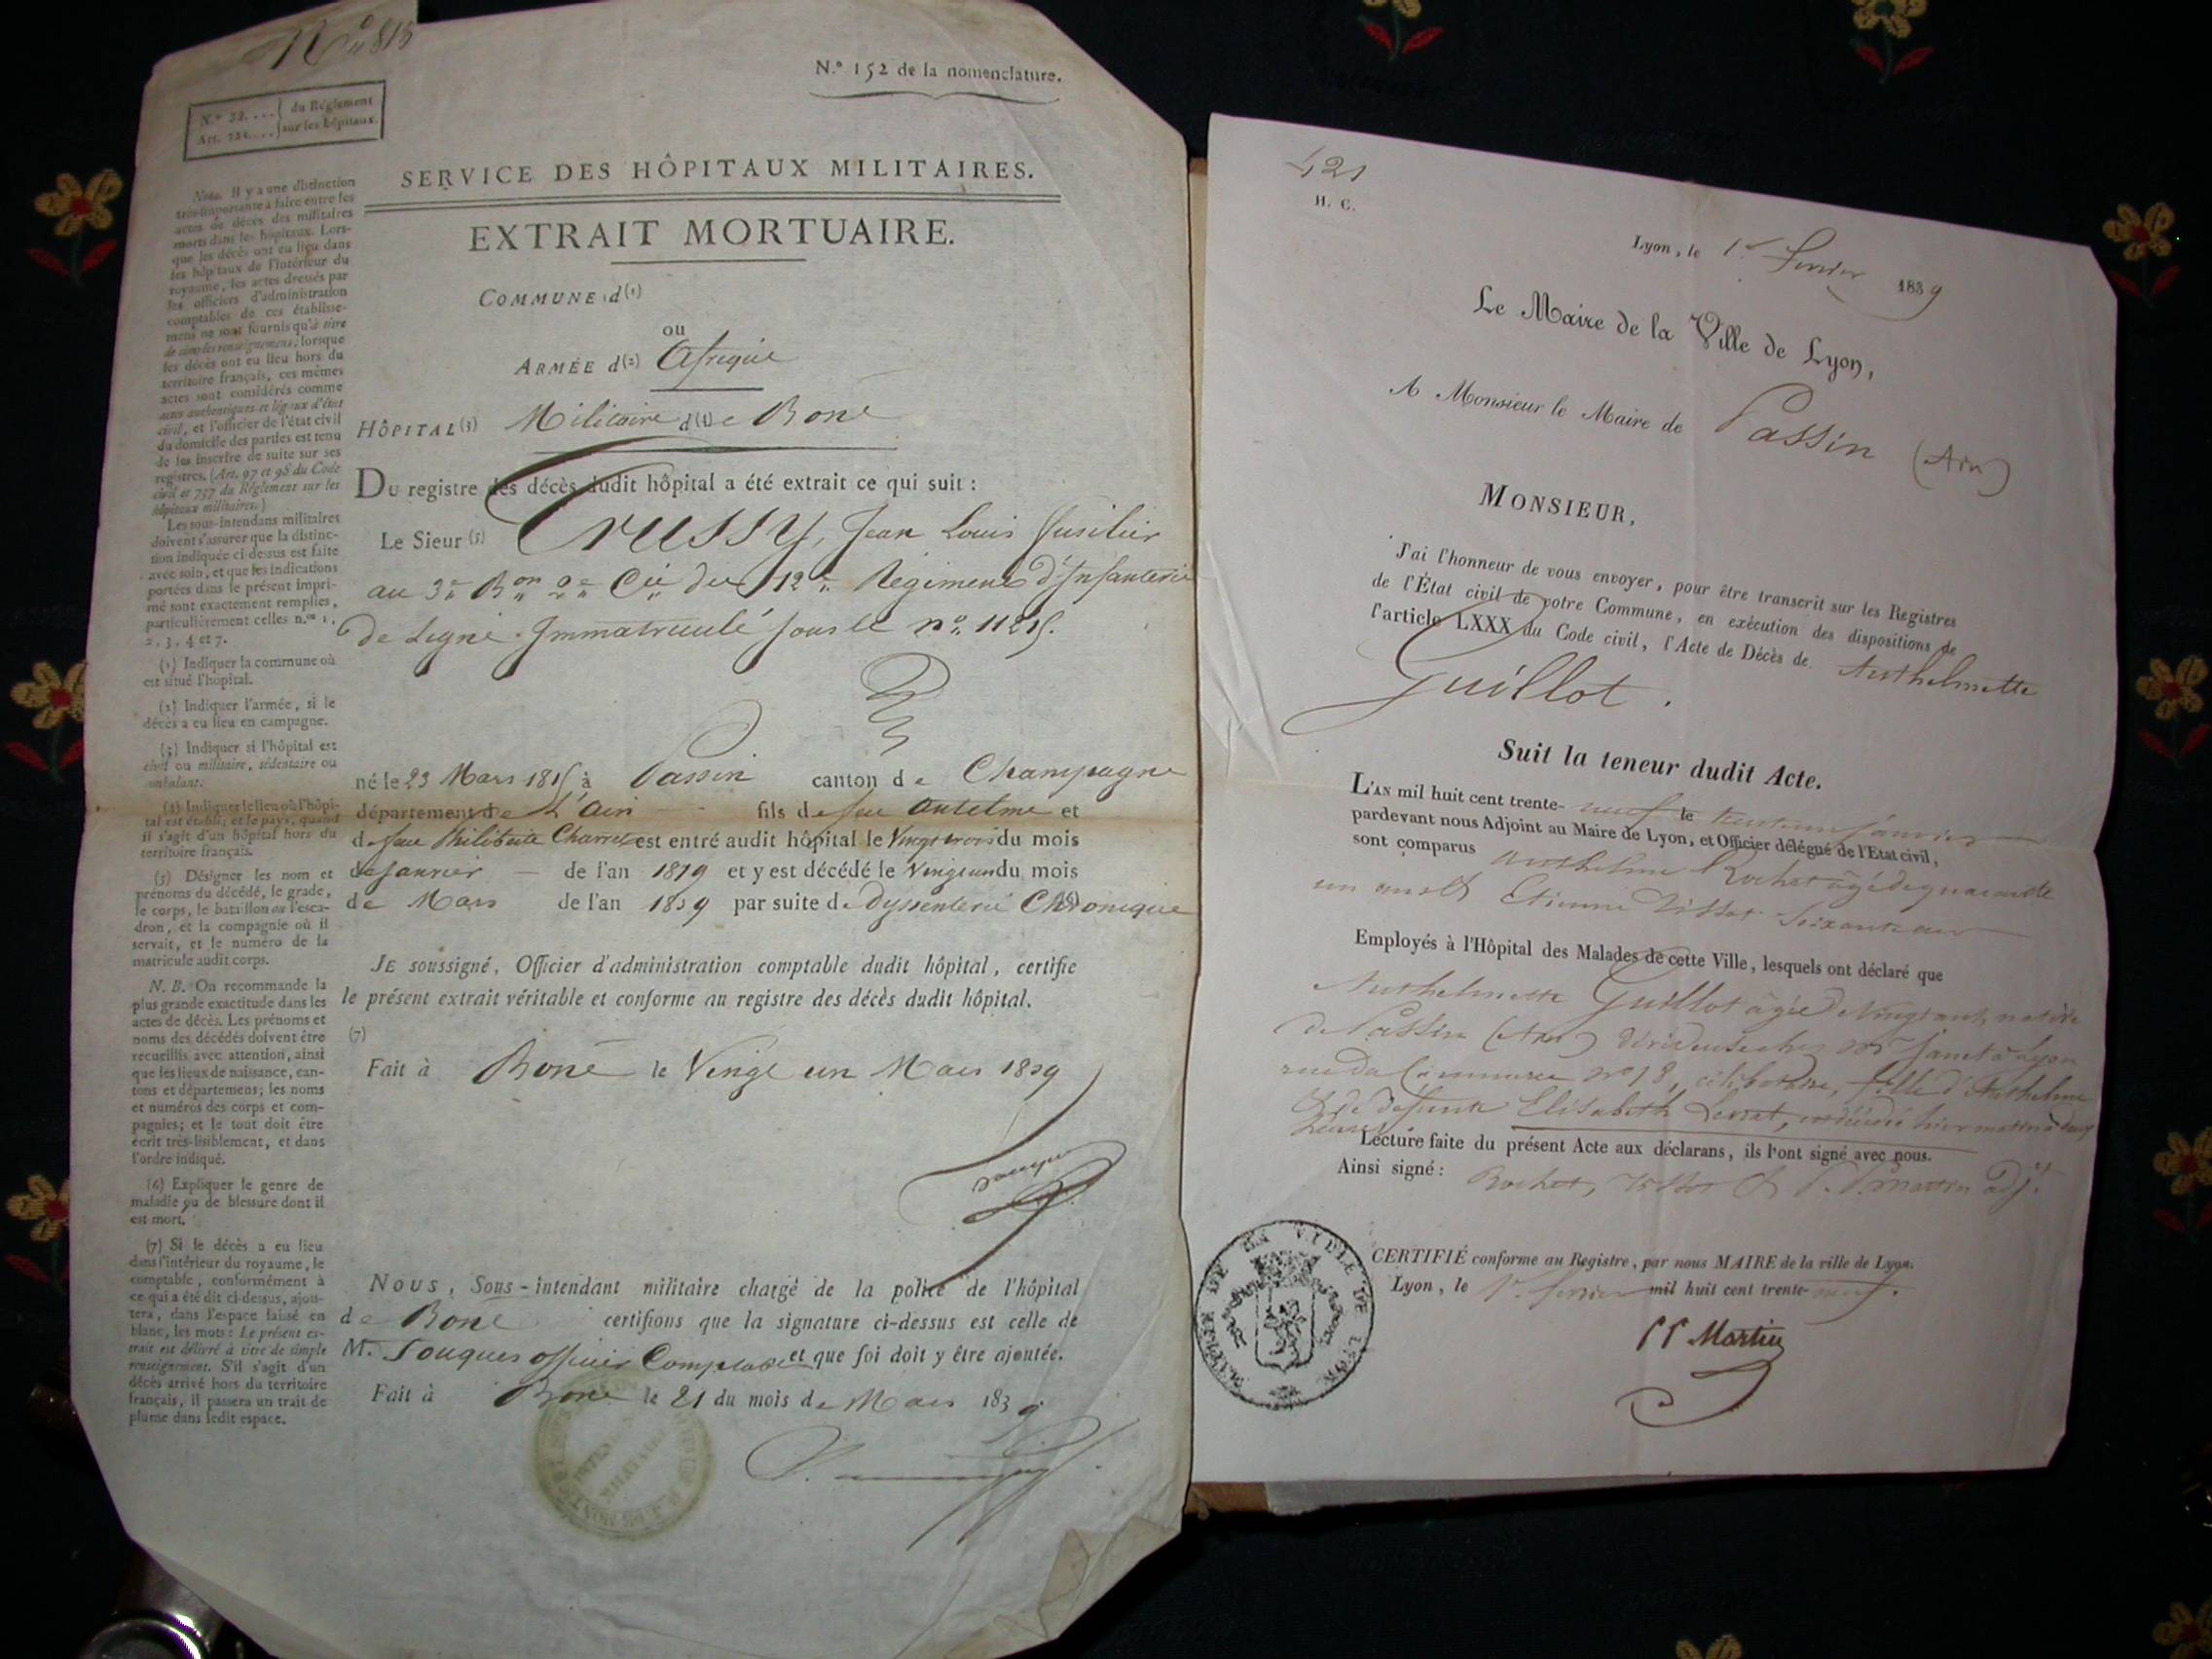 N.º 813
N.º 152 de la nomenclature.
N.º 32.... du Réglement
Art. 731.... sur les hôpitaux.
SERVICE DES HÔPITAUX MILITAIRES.
EXTRAIT MORTUAIRE.
COMMUNE d(1)
ou
ARMÉE d(2) Afrique
HÔPITAL(3) Militaire d(4)e Bone
DU registre des décès dudit hôpital a été extrait ce qui suit :
Le Sieur (5) Trussy, Jean Louis fusilier
au 3e Bon 2e Cie du 12e Régiment d'Infanterie
de Ligne. Immatriculé sous le no 11215.
né le 23 Mars 1815 à Passin canton de Champagne
département de L'Ain fils de feu Antelme et
de feue Philiberte Charvet est entré audit hôpital le Vingt trois du mois
de Janvier de l'an 1839 et y est décédé le Vingt un du mois
de Mars de l'an 1839 par suite de (6) Dyssenterie Chronique
JE soussigné, Officier d'administration comptable dudit hôpital, certifie
le présent extrait véritable et conforme au registre des décès dudit hôpital.
(7)
Fait à Bone le Vingt un Mars 1839
NOUS, Sous-intendant militaire chargé de la police de l'hôpital
de Bone certifions que la signature ci-dessus est celle de
M. Souques officier Comptable et que foi doit y être ajoutée.
Fait à Bone le 21 du mois de Mars 1839
Nota. Il y a une distinction
très-importante à faire entre les
actes de décès des militaires
morts dans les hôpitaux. Lors-
que les décès ont eu lieu dans
les hôpitaux de l'intérieur du
royaume, les actes dressés par
les officiers d'administration
comptables de ces établisse-
mens ne sont fournis qu'à titre
de simples renseignemens; lorsque
les décès ont eu lieu hors du
territoire français, ces mêmes
actes sont considérés comme
actes authentiques et légaux d'état
civil, et l'officier de l'état civil
du domicile des parties est tenu
de les inscrire de suite sur ses
registres. (Art. 97 et 98 du Code
civil et 757 du Réglement sur les
hôpitaux militaires.)
Les sous-intendans militaires
doivent s'assurer que la distinc-
tion indiquée ci-dessus est faite
avec soin, et que les indications
portées dans le présent impri-
mé sont exactement remplies,
particulièrement celles n.os 1,
2, 3, 4 et 7.
(1) Indiquer la commune où
est situé l'hôpital.
(2) Indiquer l'armée, si le
décès a eu lieu en campagne.
(3) Indiquer si l'hôpital est
civil ou militaire, sédentaire ou
ambulant.
(4) Indiquer le lieu où l'hôpi-
tal est établi; et le pays, quand
il s'agit d'un hôpital hors du
territoire français.
(5) Désigner les nom et
prénoms du décédé, le grade,
le corps, le bataillon ou l'esca-
dron, et la compagnie où il
servait, et le numéro de la
matricule audit corps.
N. B. On recommande la
plus grande exactitude dans les
actes de décès. Les prénoms et
noms des décédés doivent être
recueillis avec attention, ainsi
que les lieux de naissance, can-
tons et départemens; les noms
et numéros des corps et com-
pagnies; et le tout doit être
écrit très-lisiblement, et dans
l'ordre indiqué.
(6) Expliquer le genre de
maladie ou de blessure dont il
est mort.
(7) Si le décès a eu lieu
dans l'intérieur du royaume, le
comptable, conformément à
ce qui a été dit ci-dessus, ajou-
tera, dans l'espace laissé en
blanc, les mots: Le présent ex-
trait est délivré à titre de simple
renseignement. S'il s'agit d'un
décès arrivé hors du territoire
français, il passera un trait de
plume dans ledit espace.
421
H. C.
Lyon, le 1er février 1839
Le Maire de la Ville de Lyon,
A Monsieur le Maire de Passin (Ain)
MONSIEUR,
J'ai l'honneur de vous envoyer, pour être transcrit sur les Registres
de l'État civil de votre Commune, en exécution des dispositions de
l'article LXXX du Code civil, l'Acte de Décès de Anthelmette
Guillot.
Suit la teneur dudit Acte.
L'AN mil huit cent trente-neuf le trente un janvier
pardevant nous Adjoint au Maire de Lyon, et Officier délégué de l'Etat civil,
sont comparus Anthelme Rochet âgé de quarante
un ans & Etienne Tissot soixante ans
Employés à l'Hôpital des Malades de cette Ville, lesquels ont déclaré que
Anthelmette Guillot âgée de Vingt ans, native
de Passin (Ain) à Lyon
rue du Commerce no 18, célibataire, fille d'Anthelme
& de defunte Elisabeth Levrat, est décédée hier matin à
heures
Lecture faite du présent Acte aux déclarans, ils l'ont signé avec nous.
Ainsi signé : Rochet, Tissot & P. P. Martin adjt.
CERTIFIÉ conforme au Registre, par nous MAIRE de la ville de Lyon.
Lyon, le 1er février mil huit cent trente-neuf.
PP Martin
MAIRIE DE LA VILLE DE LYON